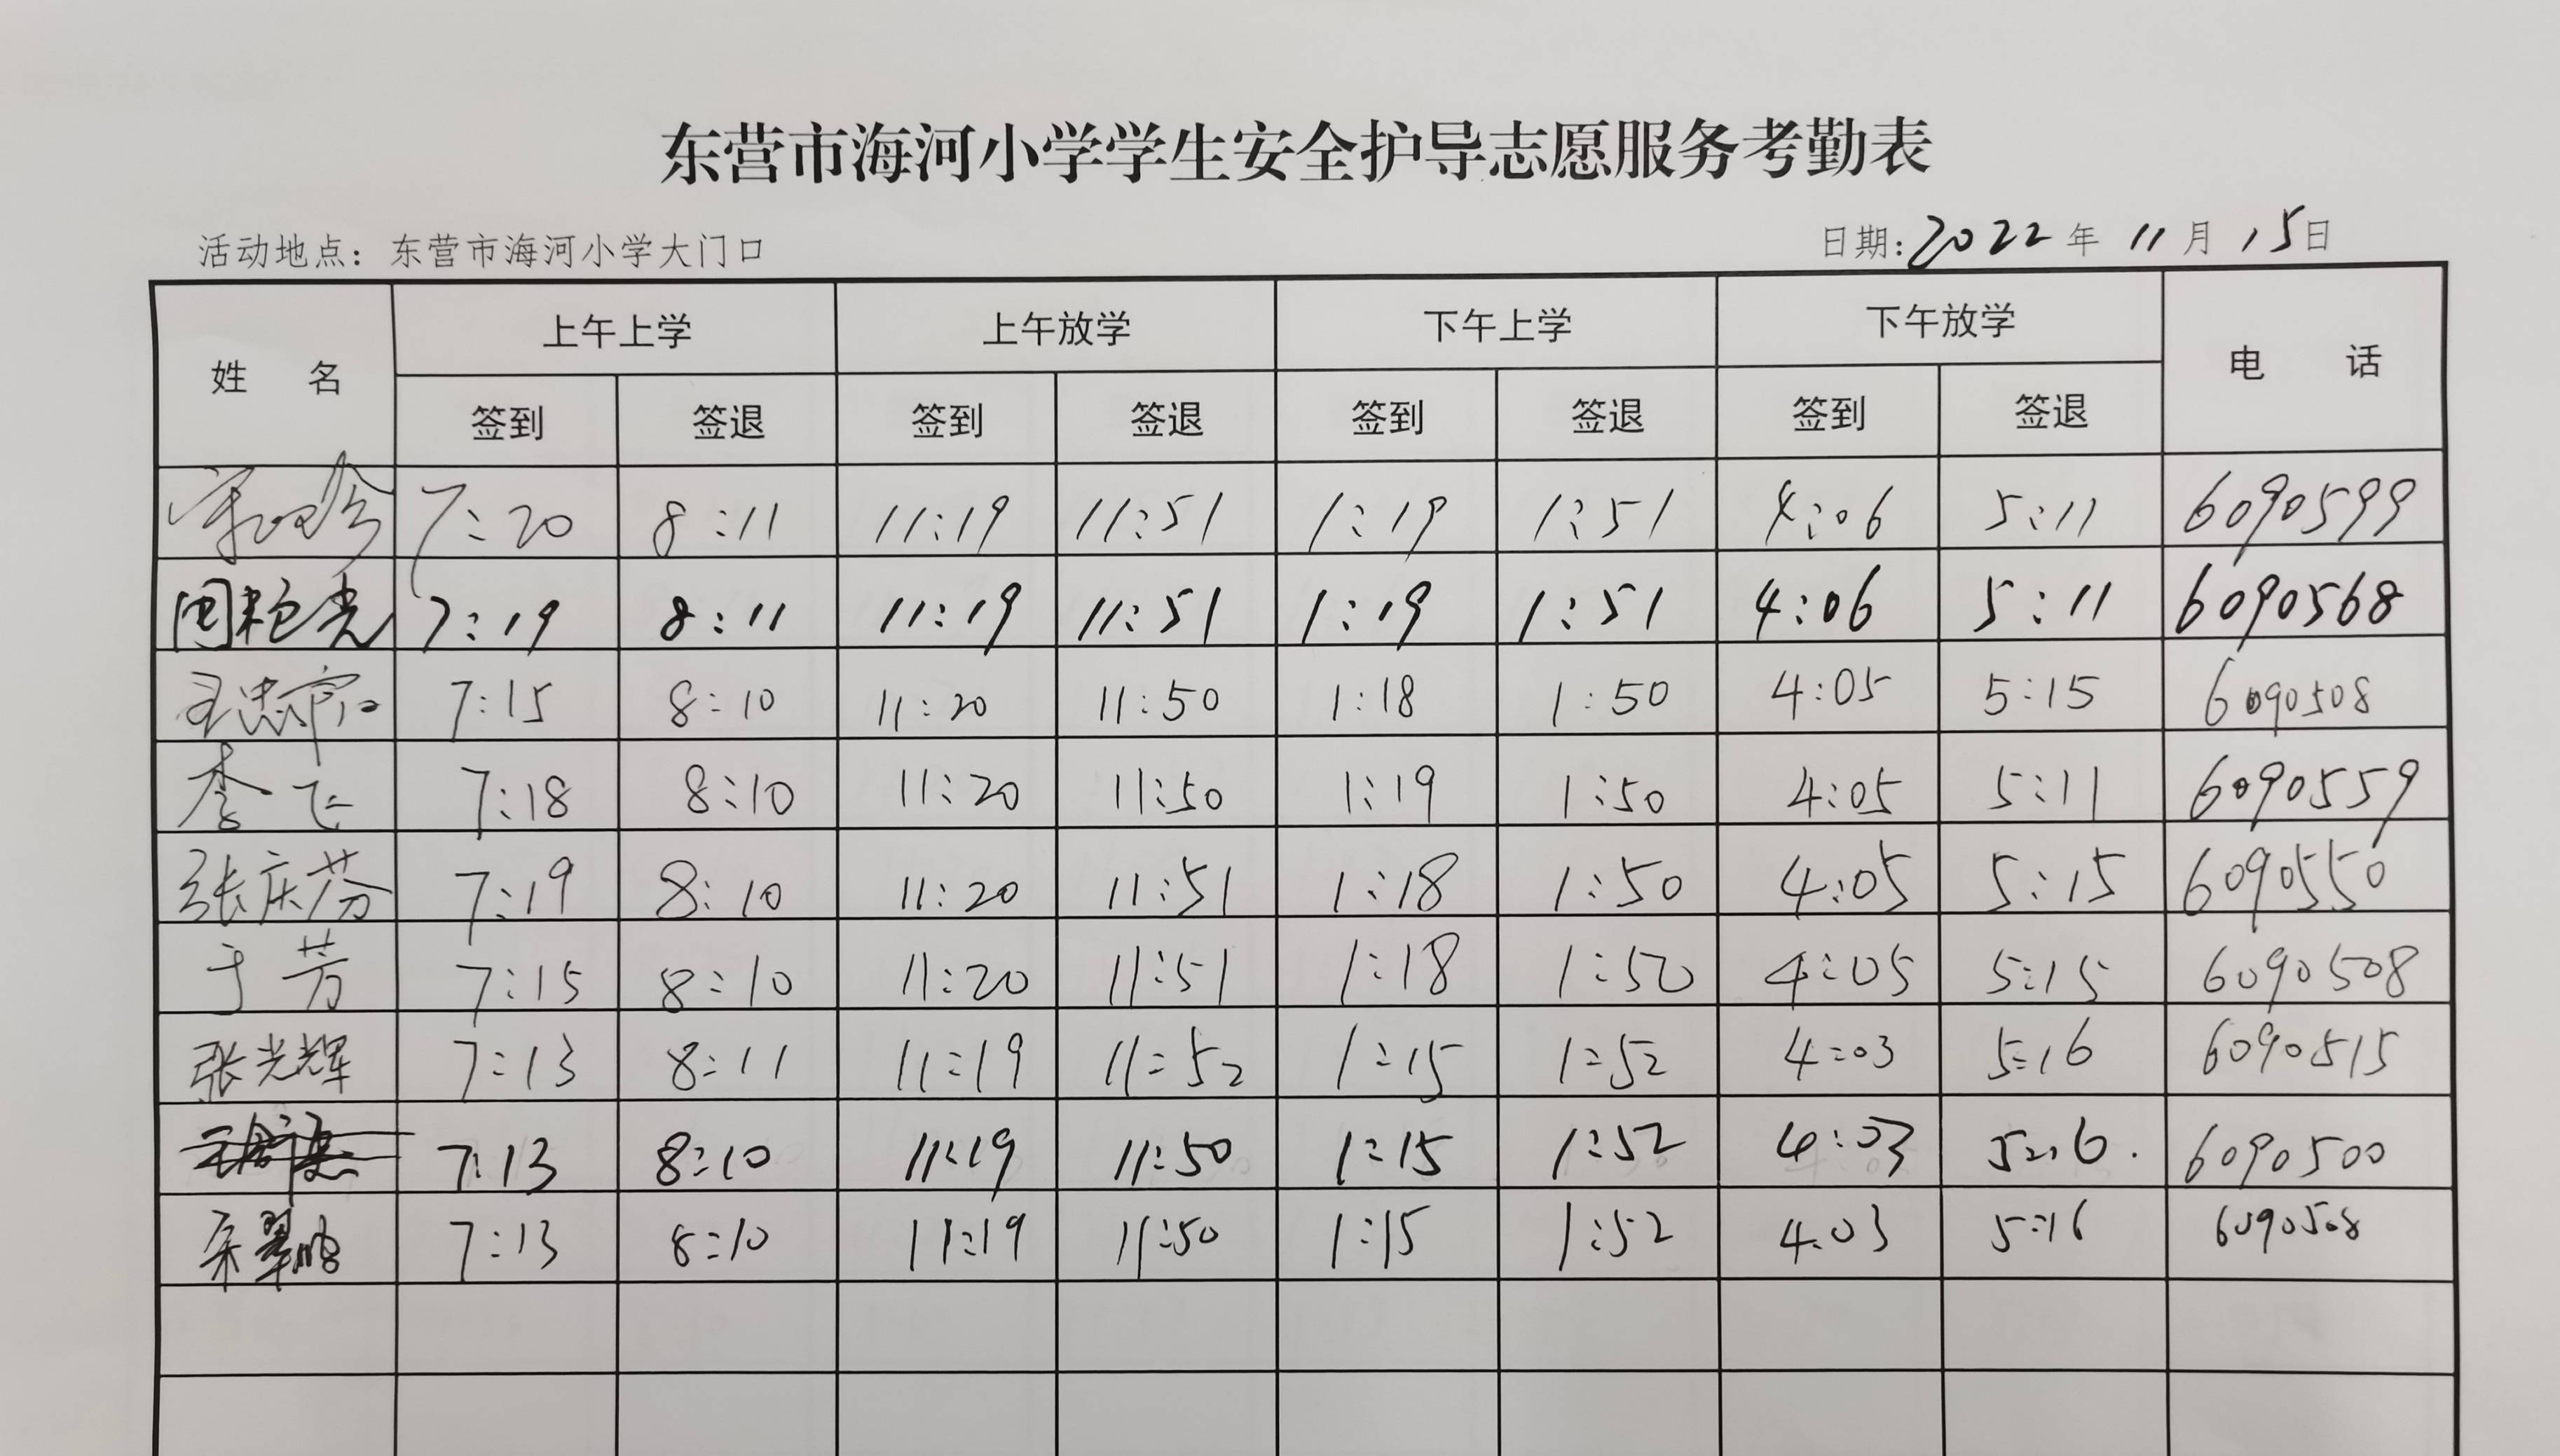 东营市海河小学学生安全护导志愿服务考勤表
活动地点：东营市海河小学大门口 日期:2022年11月15日
姓 名 上午上学 上午放学 下午上学 下午放学 电 话
签到 签退 签到 签退 签到 签退 签到 签退
7:20 8:11 11:19 11:51 1:19 1:51 4:06 5:11 6090599
7:19 8:11 11:19 11:51 1:19 1:51 4:06 5:11 6090568
7:15 8:10 11:20 11:50 1:18 1:50 4:05 5:15 6090508
李飞 7:18 8:10 11:20 11:50 1:19 1:50 4:05 5:11 6090559
张庆芬 7:19 8:10 11:20 11:51 1:18 1:50 4:05 5:15 6090550
于芳 7:15 8:10 11:20 11:51 1:18 1:50 4:05 5:15 6090508
张光辉 7:13 8:11 11:19 11:52 1:15 1:52 4:03 5:16 6090515
7:13 8:10 11:19 11:50 1:15 1:52 4:03 5:16. 6090500
7:13 8:10 11:19 11:50 1:15 1:52 4:03 5:16 6090508